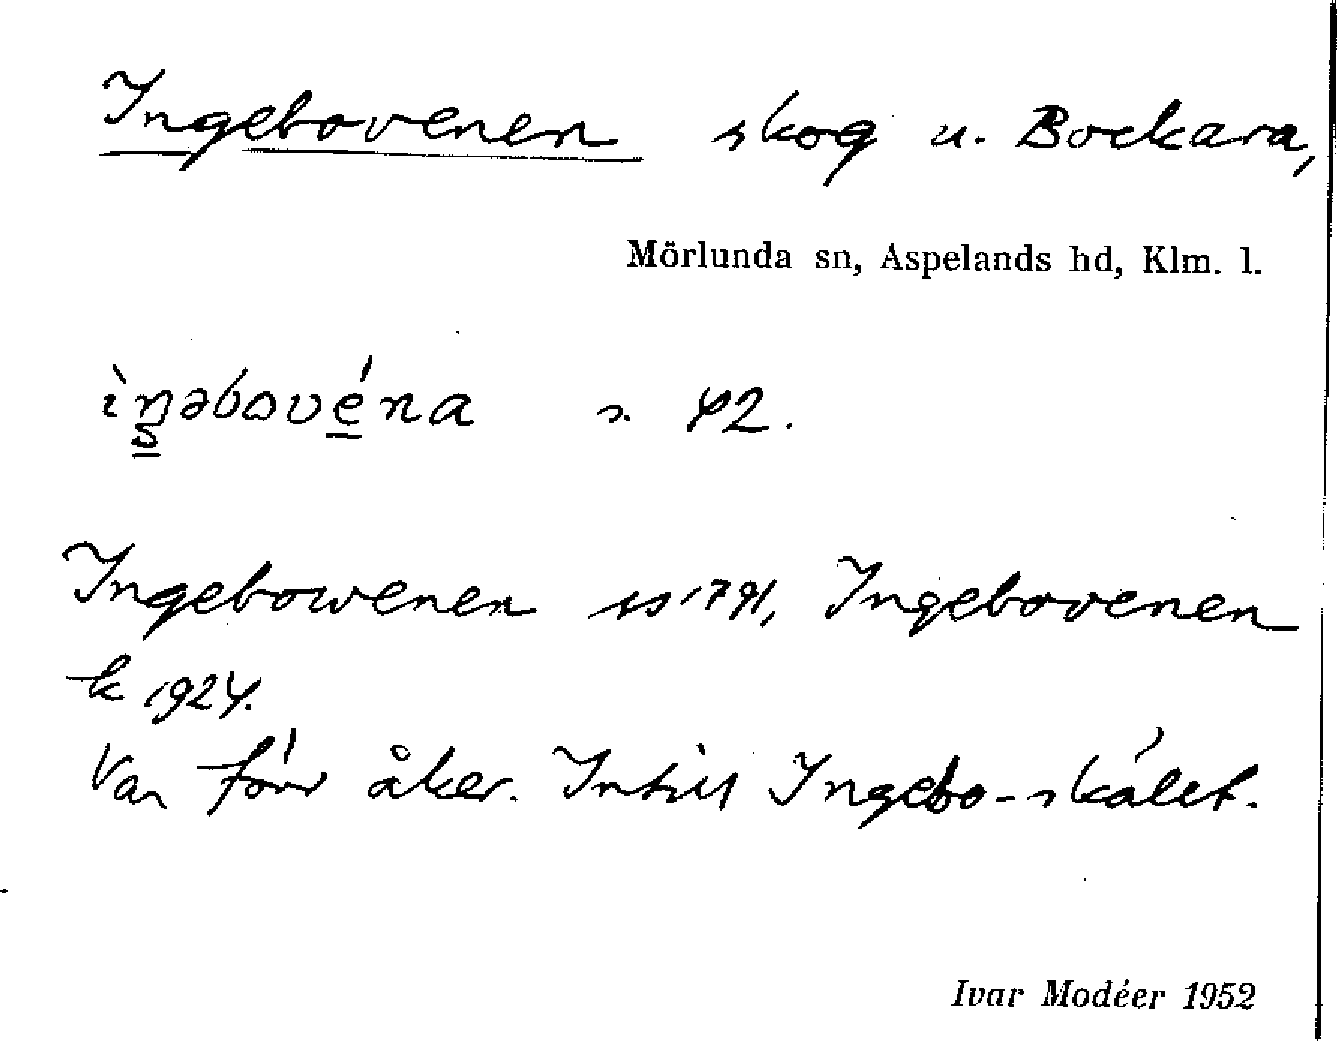 Ingebovenen skog u. Bockara,
Mörlunda sn, Aspelands hd, Klm. l.
s. 42.
Ingebowenen ss 1791, Ingebovenen
k 1924.
Var förr åker. Intill Ingebo-skálet.
Ivar Modéer 1952